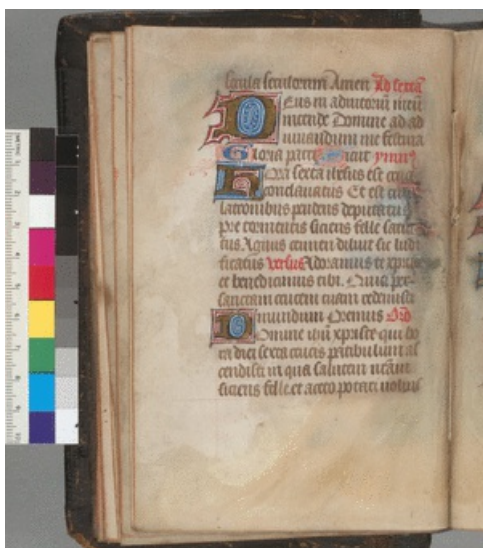 secula seculorum Amen Ad sextā
Deus in adiutoriū meū
intende Domine ad ad
iuuandum me festina
Gloria patri Sicut ymnꝰ
Hora sexta ihesus est cruci
conclauatus Et est cum
latronibus pendens deputatus
Pre tormentis siciens felle satu
tus Agnus crimen diluit sic ludi
ficatus versus Adoramus te xpriste
et benedicimus tibi. Quia per
sanctam crucem tuam redemisti
mundum Oremus
Domine ihū xpriste qui ho
ra diei sexta crucis patibulum as
cendisti in qua salutem
siciens felle et aceto potari uoluis